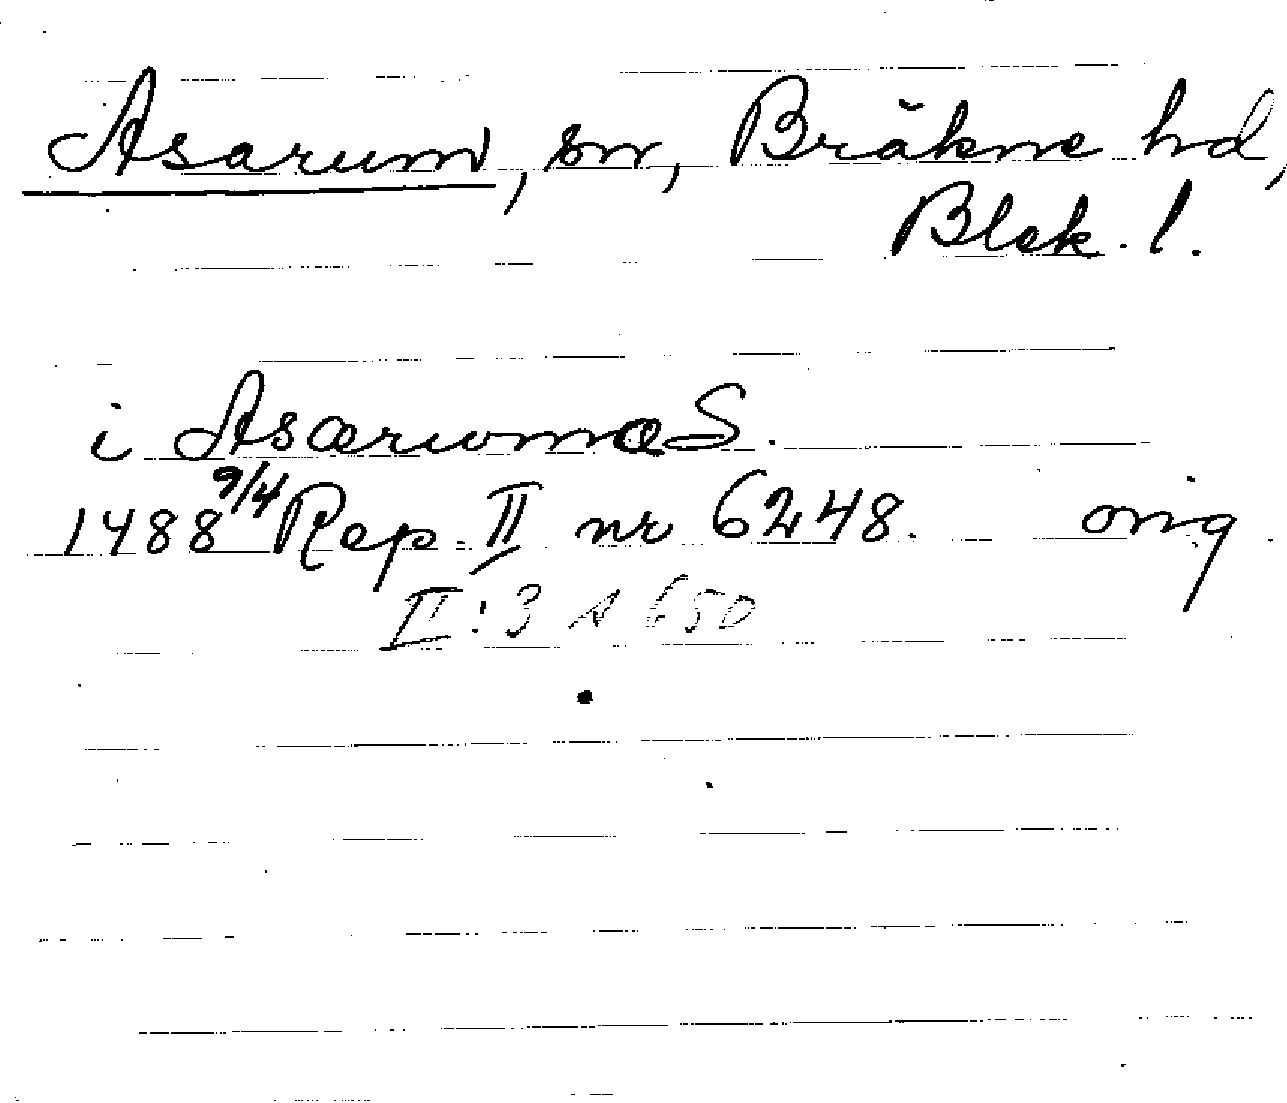 Asarum, sn, Bräkne hd,
Blek. l.
i Asaruma S.
1488 9/4 Rep. II nr 6248. orig.
II:3 s 650